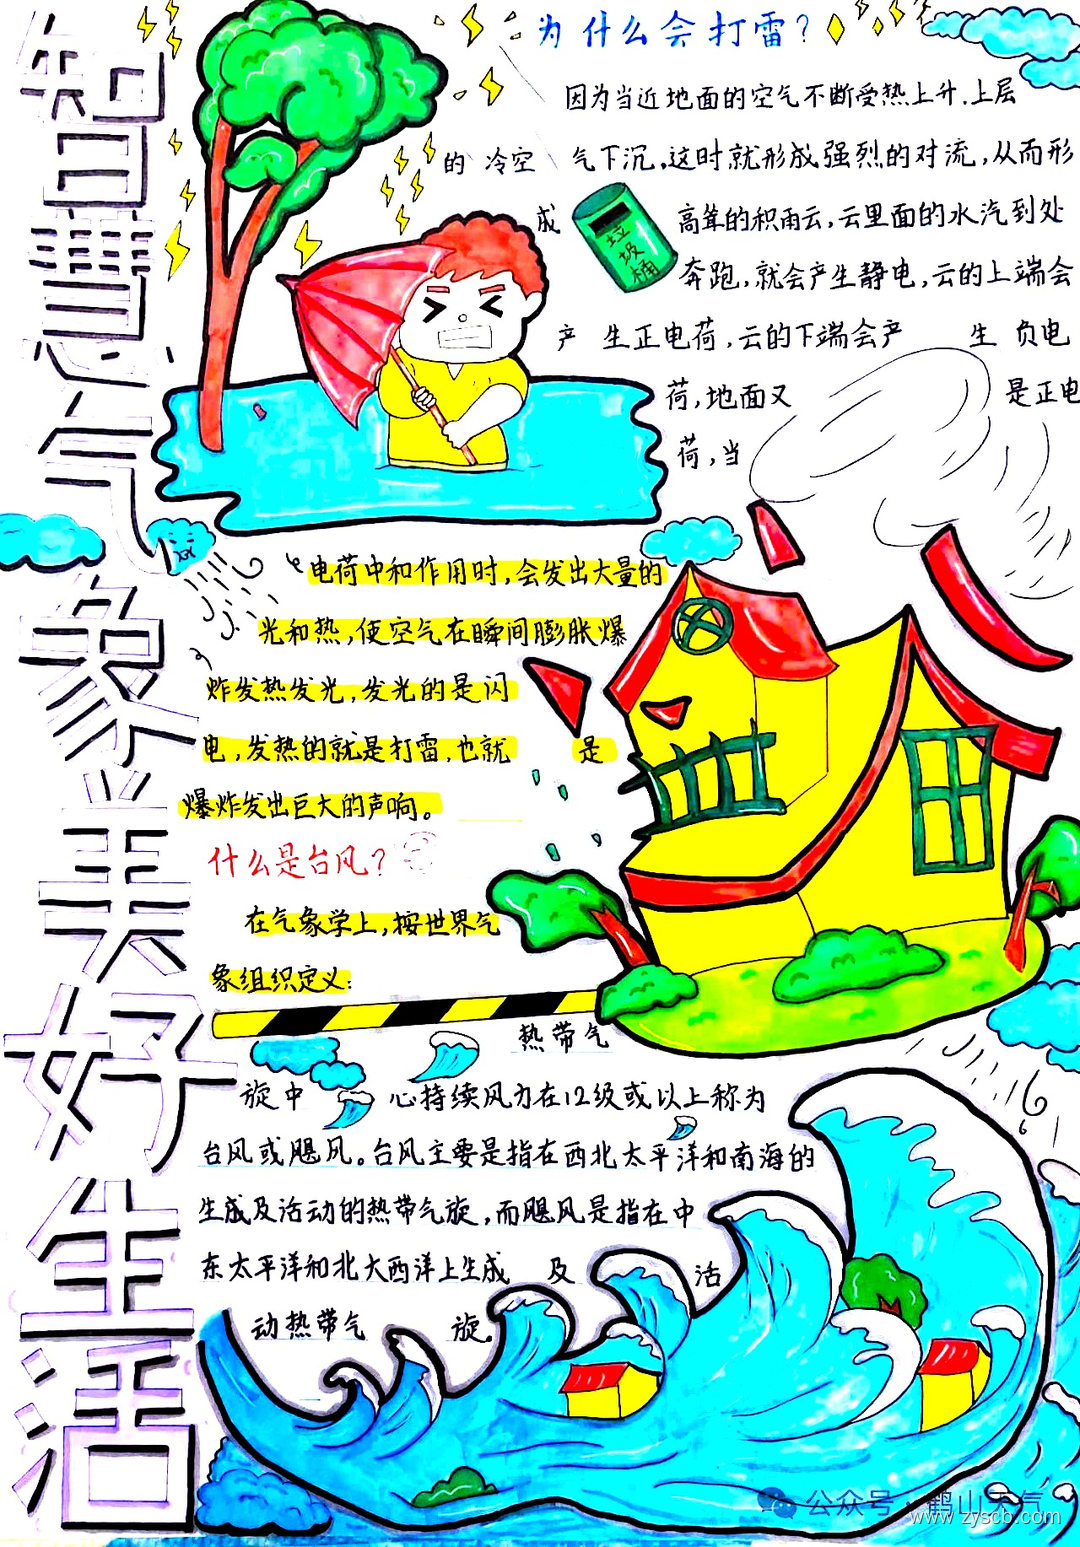 智慧气象美好生活
为什么会打雷？
因为当近地面的空气不断受热上升.上层
的冷空气下沉,这时就形成强烈的对流,从而形
成高耸的积雨云,云里面的水汽到处
垃圾桶
奔跑,就会产生静电,云的上端会
产生正电荷,云的下端会产生负电
荷,地面又是正电
荷,当
电荷中和作用时,会发出大量的
光和热,使空气在瞬间膨胀爆
炸发热发光,发光的是闪
电,发热的就是打雷,也就是
爆炸发出巨大的声响。
什么是台风?
在气象学上,按世界气
象组织定义:
热带气
旋中心持续风力在12级或以上称为
台风或飓风。台风主要是指在西北太平洋和南海的
生成及活动的热带气旋,而飓风是指在中
东太平洋和北大西洋上生成及活
动热带气旋
公众号·鹤山天气
www.zyscb.com